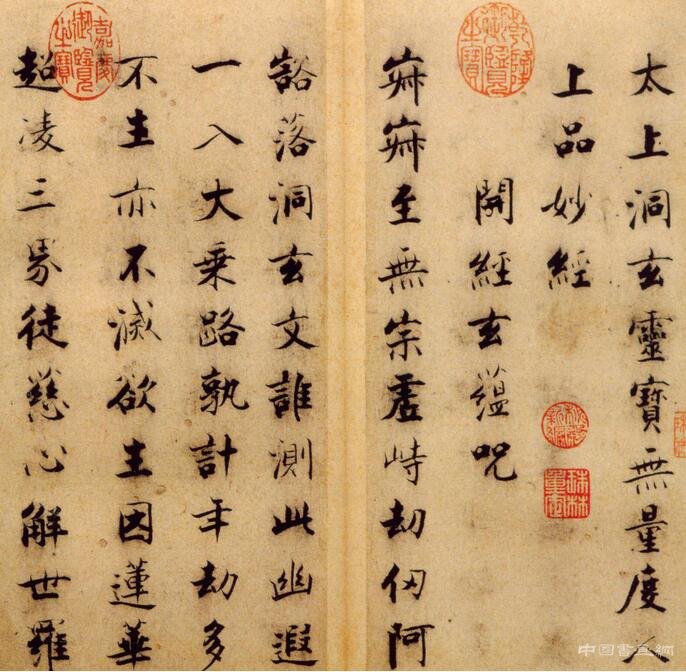 太上洞玄靈寶無量度人
上品妙經
開經玄蘊呪
寂寂至無宗虛峙劫仞阿
豁落洞玄文誰測此幽遐
一入大乘路孰計年劫多
不生亦不滅欲生因蓮華
超凌三界徒慈心解世羅
乾隆御覽之寶
嘉慶御覽之寶
秘殿新編
珠林重定